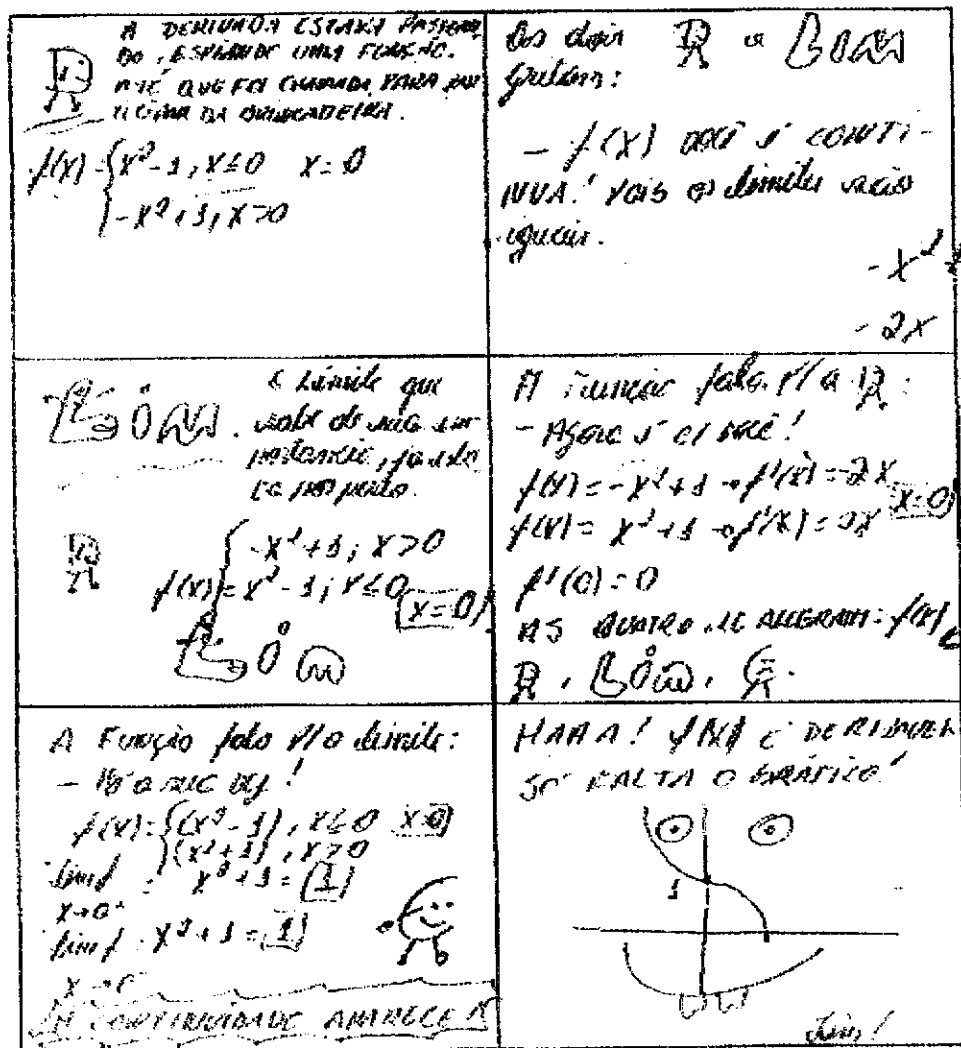 A DERIVADA ESTAVA PASSEAN
DO,
UMA FUNÇÃO.
ATÉ QUE FOI CHAMADA PARA
DA BRINCADEIRA.
f(x) = {x² - 1, x ≤ 0 x = 0
{-x² + 1, x > 0
Os dois
gritam:
- f(x) você é CONTÍ-
NUA! Pois os limites são
iguais.
- x²
- 2x
Lim
O Limite que
sabe de sua im-
portância,
por perto.
{-x² + 1; x > 0
f(x) = x² - 1; x ≤ 0
x = 0
Lim
A Função fala p/ a D:
- Agora é c/ você!
f(x) = -x² + 1 → f'(x) = -2x
f(x) = x² + 1 → f'(x) = 2x
x = 0
f'(0) = 0
AS QUATRO SE ALEGRAM: f(x)
D, Lim, C.
A Função fala p/ o limite:
f(x) = {(x² - 1), x ≤ 0 x = 0
{(x² + 1), x > 0
lim f : x² + 1 = (1)
x → 0
lim f : x² + 1 = (1)
x → 0
A CONTINUIDADE APARECE
HAHA! f(x) é DERIVÁVEL
SÓ FALTA O GRÁFICO!
1
Fim!